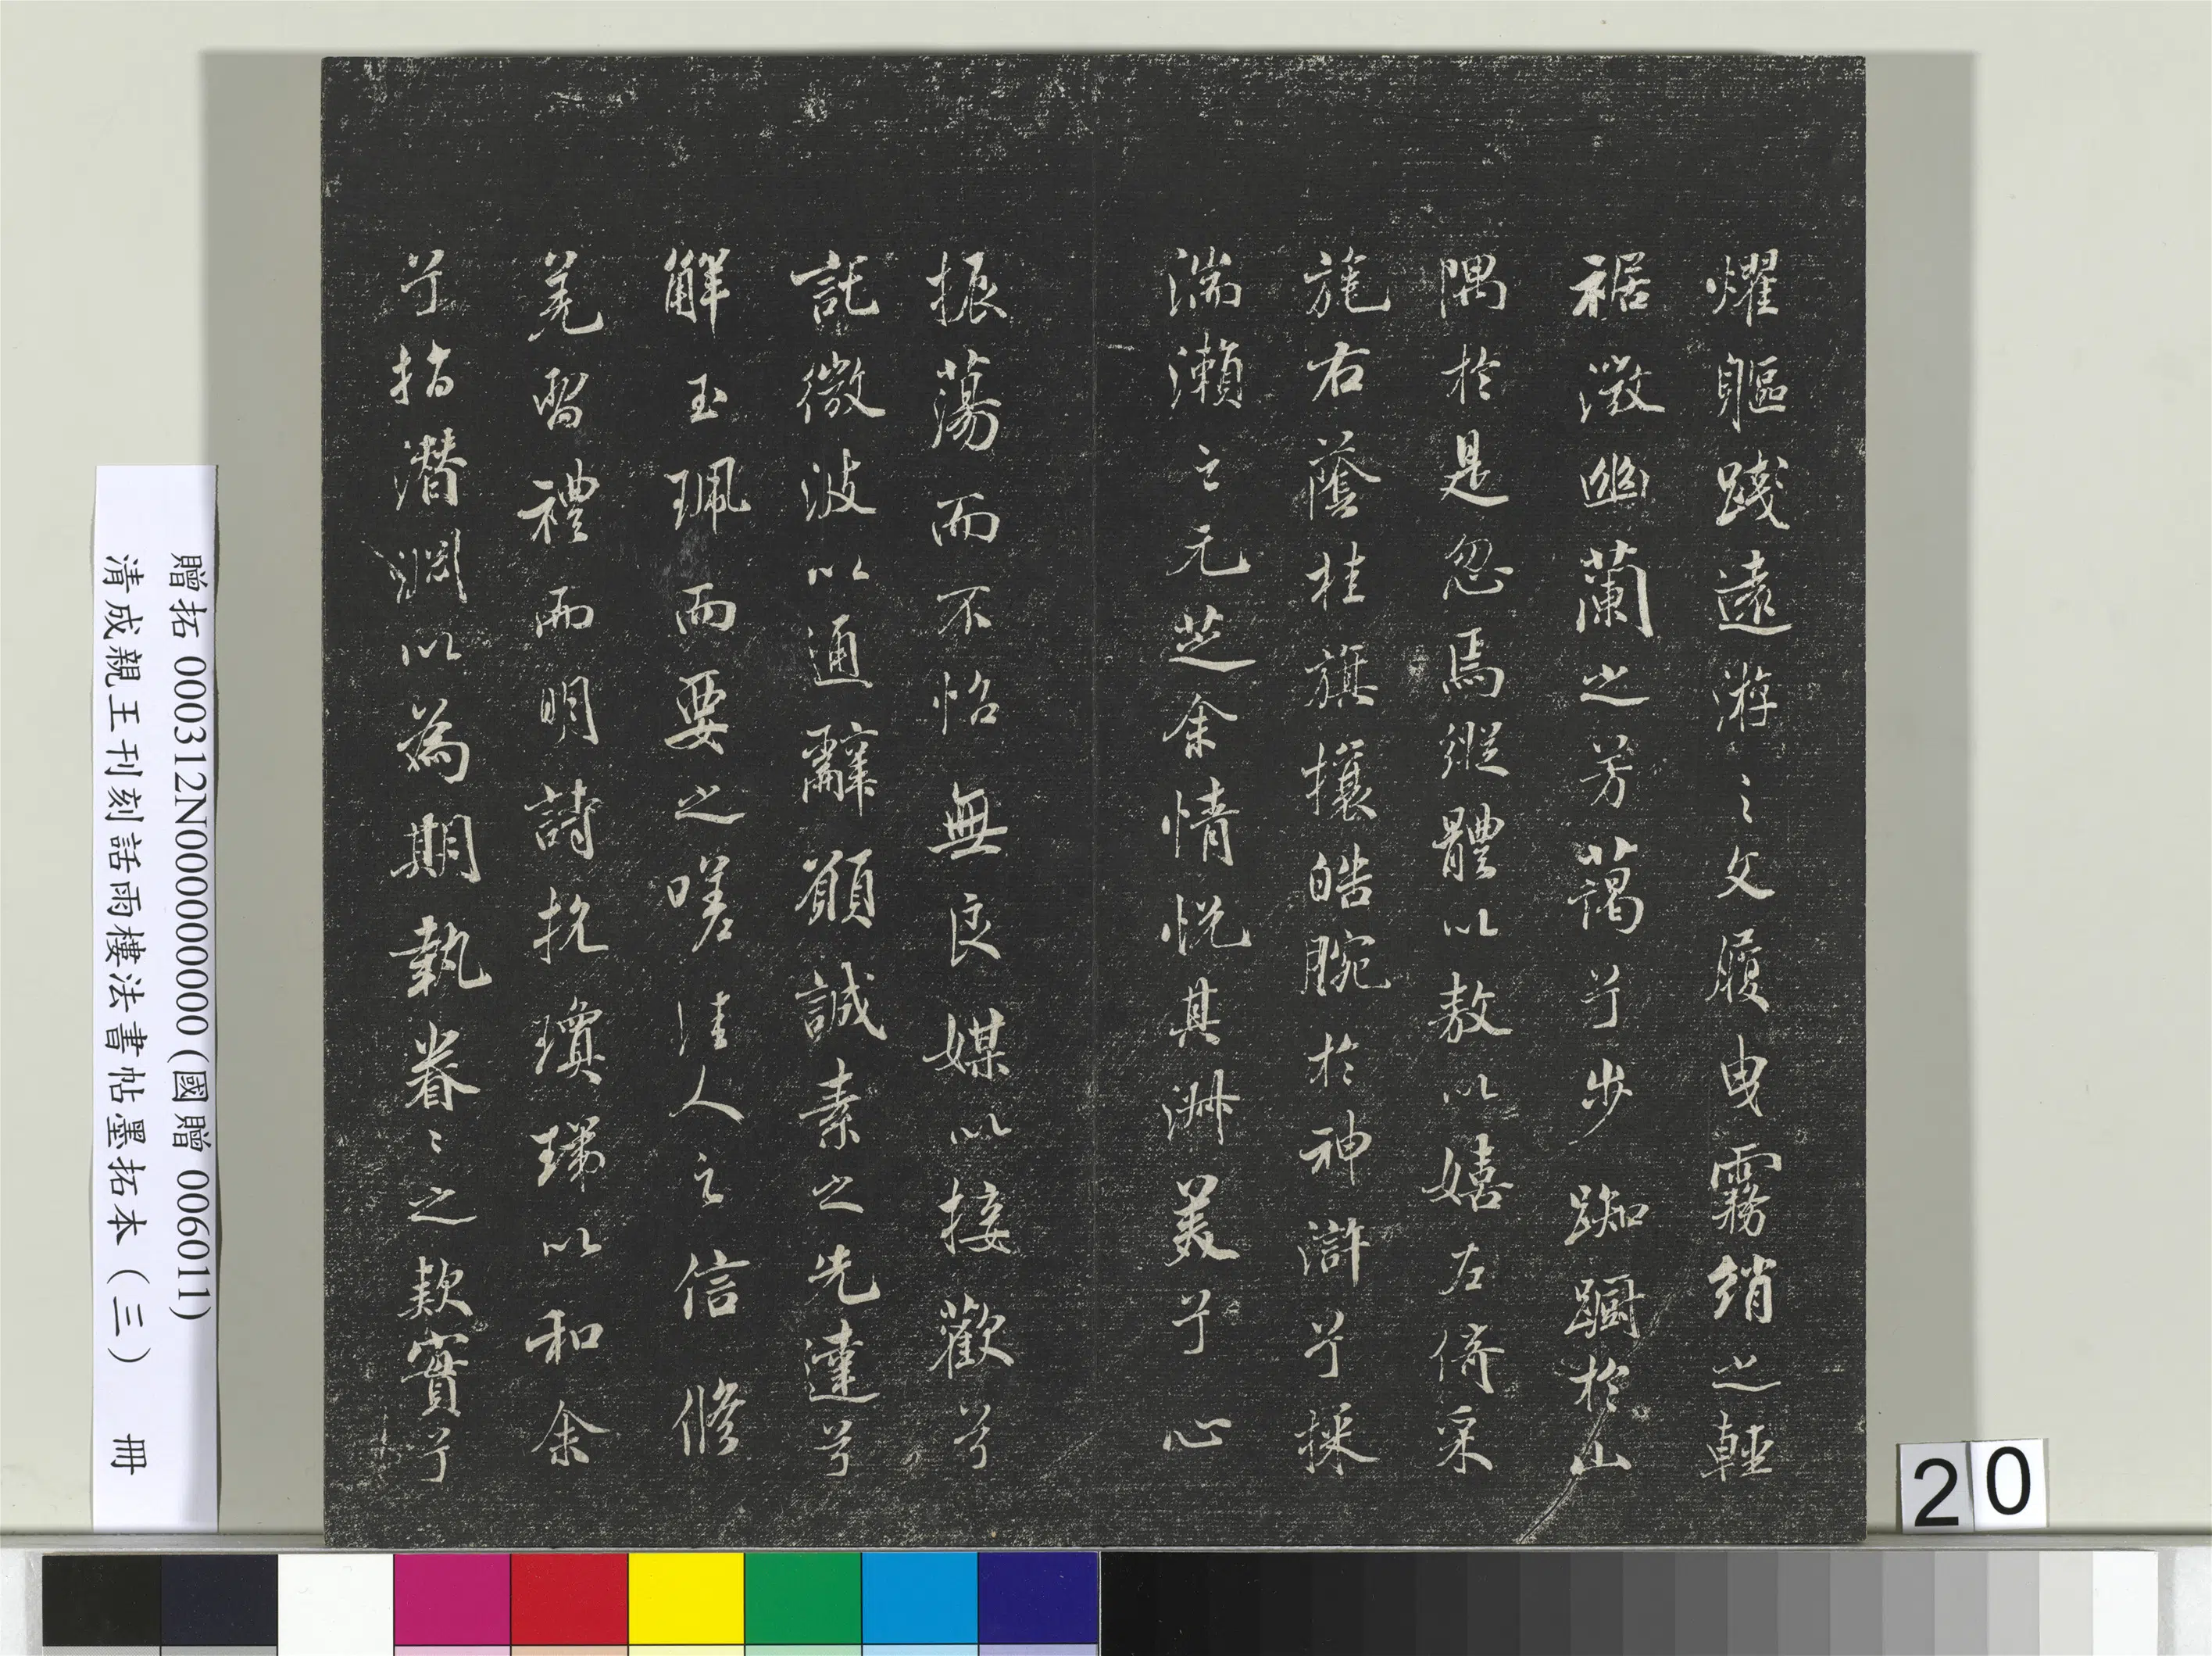 燿軀踐遠游之文履曳霧綃之輕
裾微幽蘭之芳藹兮步踟躕於山
隅於是忽焉縱體以敖以嬉左倚采
旄右蔭桂旗攘皓腕於神滸兮採
湍瀨之元芝余情悅其淋美兮心
振蕩而不怡無良媒以接歡兮
託微波以通辭願誠素之先達兮
解玉珮而要之嗟佳人之信脩
羌習禮而明詩抗瓊珶以和余
兮指潛淵以為期執眷〻之款實兮
贈拓 000312N000000000 (國贈 006011)
清成親王刊刻話雨樓法書帖墨拓本（三） 冊
20